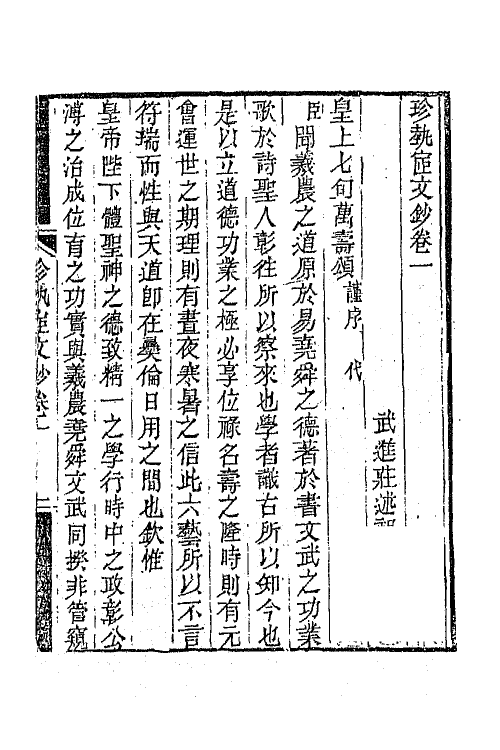 珍執宧文鈔卷一
武進莊述祖
皇上七旬萬壽頌謹序 代
臣聞羲農之道原於易堯舜之德著於書文武之功業
歌於詩聖人彰徃所以察來也學者識古所以知今也
是以立道德功業之極必享位祿名壽之隆時則有元
會運世之期理則有晝夜寒暑之信此六藝所以不言
符瑞而性與天道卽在彝倫日用之間也欽惟
皇帝陛下體聖神之德致精一之學行時中之政彰公
溥之治成位育之功實與羲農堯舜文武同揆非管窺
珍執宧文鈔卷一 一